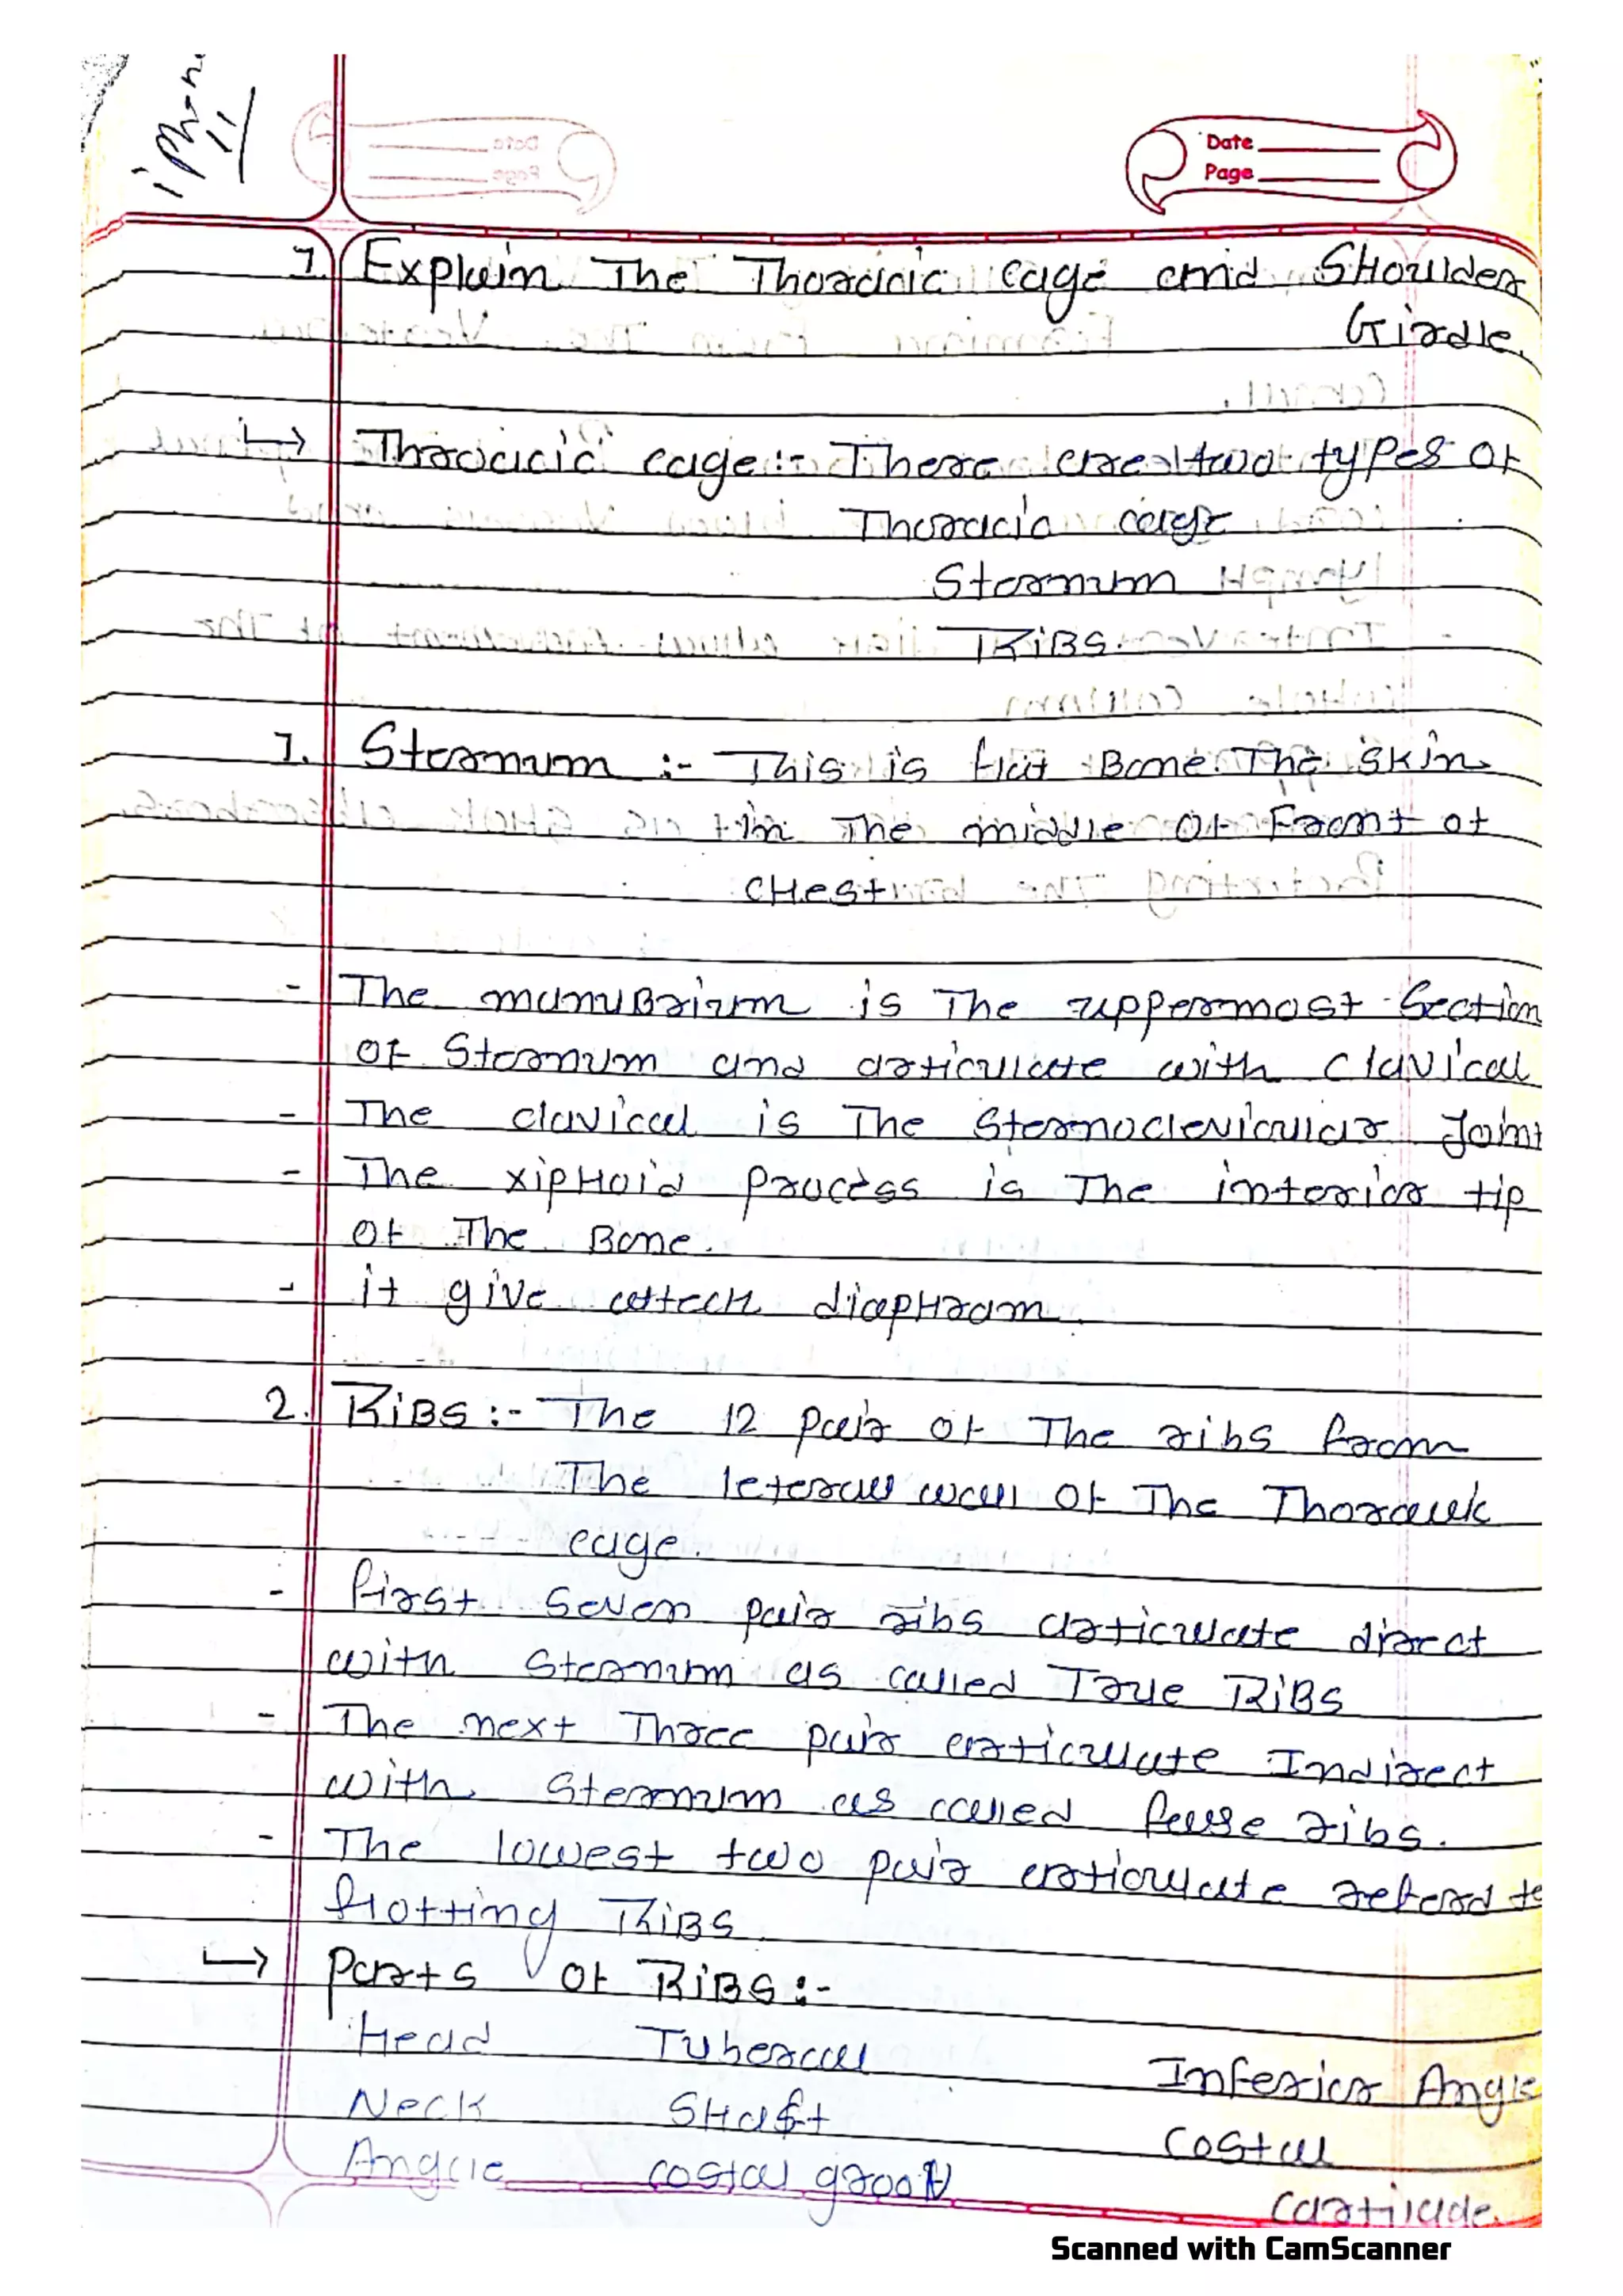 iPhon
11
Date
Page
1. Explain The Thoracic cage and SHoulder
Girdle.
↳ Thoracic cage:- There are two types of
Thoracic cage
Sternum
RiBS.
1. Sternum :- This is flat Bone. The skin
in The middle of Front of
CHest
- The manuBrium is The uppermost Section
of Sternum and articulate with clavical
- The clavical is The Sternoclevicular Joint
- The xipHoid process is The interior tip
of The Bone.
- it give attecH diapHram.
2. RiBS :- The 12 pair of The ribs from
The leteral wall of The Thoracic
cage.
- first seven pair ribs articulate direct
with Sternum as called True RiBS
- The next Three pair articulate Indirect
with Sternum as called false ribs.
- The lowest two pair articulate referd to
flotting RiBS.
↳ Parts of RiBS :-
Head Tubercal Inferior Angle
Neck SHaft Costal
Angle costal groov Cartilade.
Scanned with CamScanner